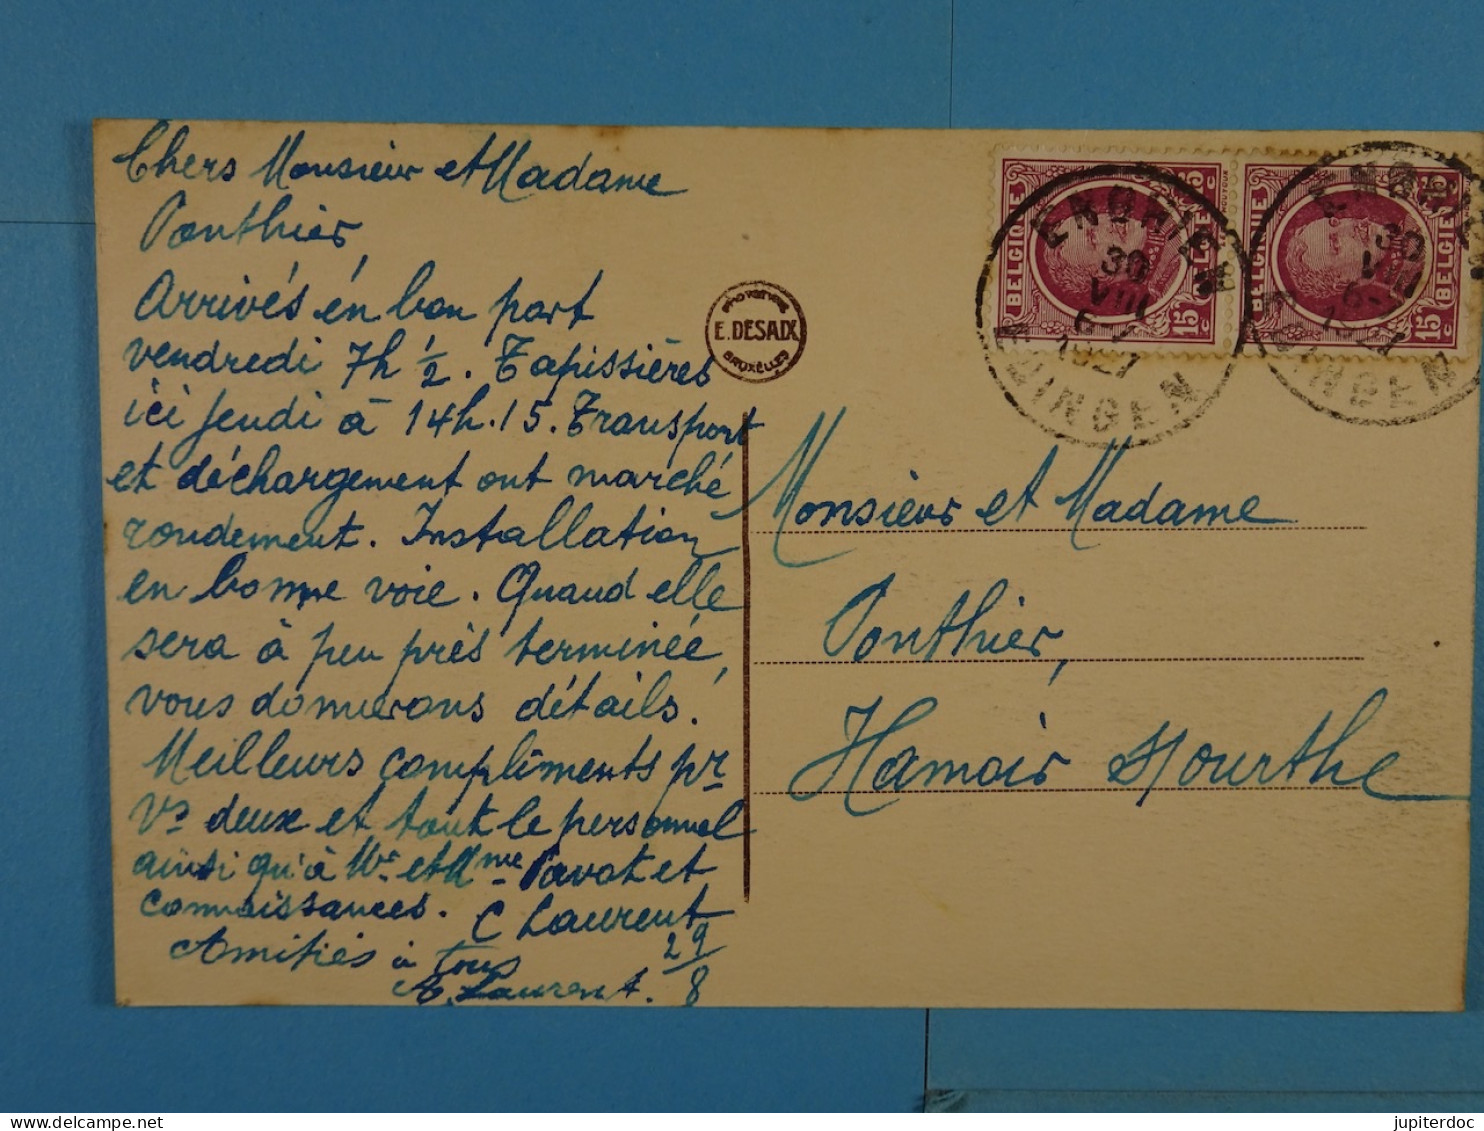 Chers Monsieur et Madame
Ponthier,
Arrivés en bon port
vendredi 7h ½. Tapissières
ici jeudi à 14h.15. Transport
et déchargement ont marché
rondement. Installation
en bonne voie. Quand elle
sera à peu près terminée,
vous donnerons détails.
Meilleurs compliments pr
Vs deux et tout le personnel
ainsi qu'à Mr et Mme Pavot et
connaissances. C Laurent
Amitiés à tous 29/8
A. Laurent.
PHOTOTYPIE
E. DESAIX
BRUXELLES
BELGIQUE
15 c
BELGIË
15 c
ENGHIEN
30
VIII
1927
EDINGEN
BELGIQUE
15 c
BELGIË
15 c
ENGHIEN
30
VIII
EDINGEN
Monsieur et Madame
Ponthier,
Hamoir s/Ourthe
jupiterdoc
www.delcampe.net